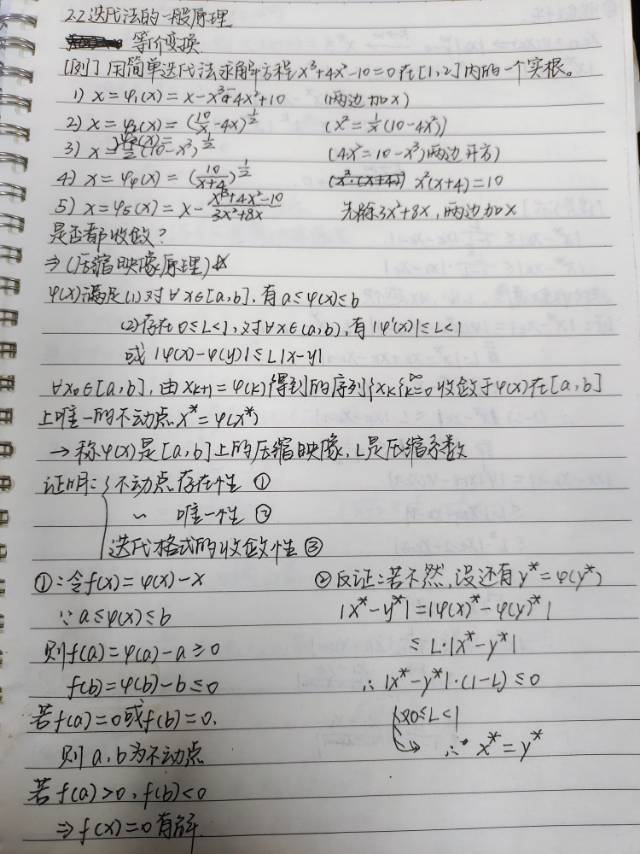 2.2 迭代法的一般原理
等价变换
[例] 用简单迭代法求解方程x³+4x²-10=0在[1,2]内的一个实根。
1) x=φ₁(x)=x-x³-4x²+10 (两边加x)
2) x=φ₂(x)=(10/x-4x)^(1/2) (x²=1/x(10-4x²))
3) x=φ₃(x)=1/2(10-x³)^(1/2) (4x²=10-x³)两边开方)
4) x=φ₄(x)=(10/(x+4))^(1/2) x²(x+4)=10
5) x=φ₅(x)=x-(x³+4x²-10)/(3x²+8x) 先除3x²+8x,两边加x
是否都收敛?
⇒(压缩映像原理)☆
φ(x)满足(1)对∀x∈[a,b],有a≤φ(x)≤b
(2)存在0≤L<1,对∀x∈(a,b),有|φ'(x)|≤L<1
或|φ(x)-φ(y)|≤L|x-y|
∀x₀∈[a,b],由x_{k+1}=φ(k)得到的序列{x_k}_{k=0}^∞收敛于φ(x)在[a,b]
上唯一的不动点x*=φ(x*)
→称φ(x)是[a,b]上的压缩映像,L是压缩系数
证明:{不动点存在性①
~ 唯一性②
迭代格式的收敛性③
①:令f(x)=φ(x)-x
∵a≤φ(x)≤b
则f(a)=φ(a)-a≥0
f(b)=φ(b)-b≤0
若f(a)=0或f(b)=0.
则a,b为不动点
若f(a)>0,f(b)<0
⇒f(x)=0有解
②反证:若不然,设还有y*=φ(y*)
|x*-y*|=|φ(x)*-φ(y)*|
≤L·|x*-y*|
∴|x*-y*|·(1-L)≤0
又0≤L<1
∴x*=y*